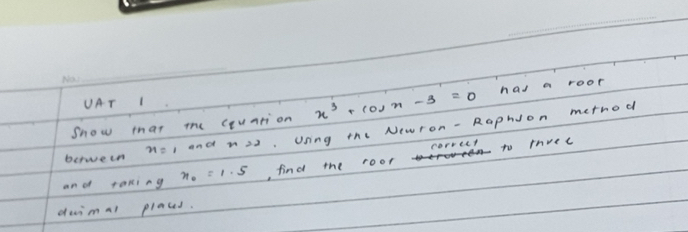 No:
UAT 1.
Show that the equation x³ + cos x - 3 = 0 has a root
between x=1 and x=2. Using the Newton-Raphson method
and taking x₀ = 1.5, find the root correct to three
decimal places.